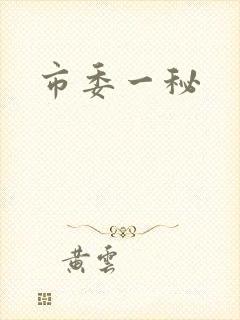 市委一秘
黄云